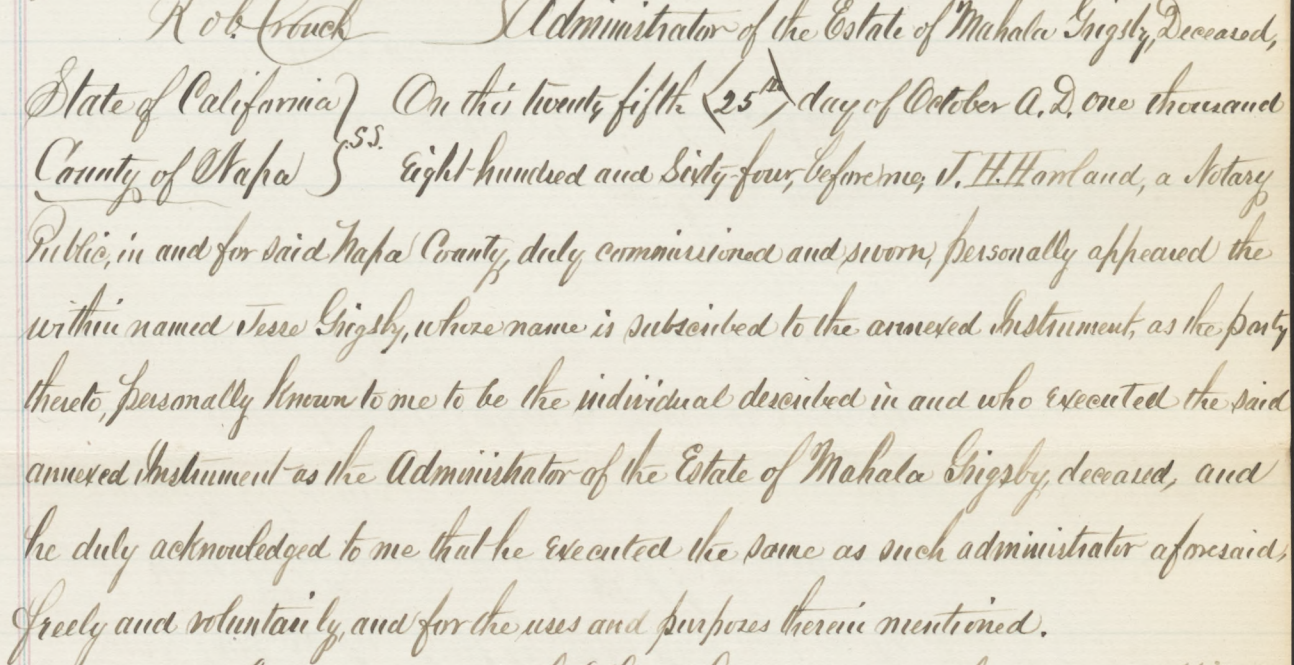 Rob. Crouch } Administrator of the Estate of Mahala Grigsby, Deceased,
State of California } On this twenty fifth (25th) day of October A.D. one thousand
County of Napa } S.S. Eight hundred and Sixty-four, before me, J. H. Harland, a Notary
Public, in and for said Napa County, duly commissioned and sworn, personally appeared the
within named Jesse Grigsby, whose name is subscribed to the annexed Instrument, as the party
thereto, personally known to me to be the individual described in and who executed the said
annexed Instrument as the Administrator of the Estate of Mahala Grigsby, deceased, and
he duly acknowledged to me that he executed the same as such administrator aforesaid,
freely and voluntarily, and for the uses and purposes therein mentioned.